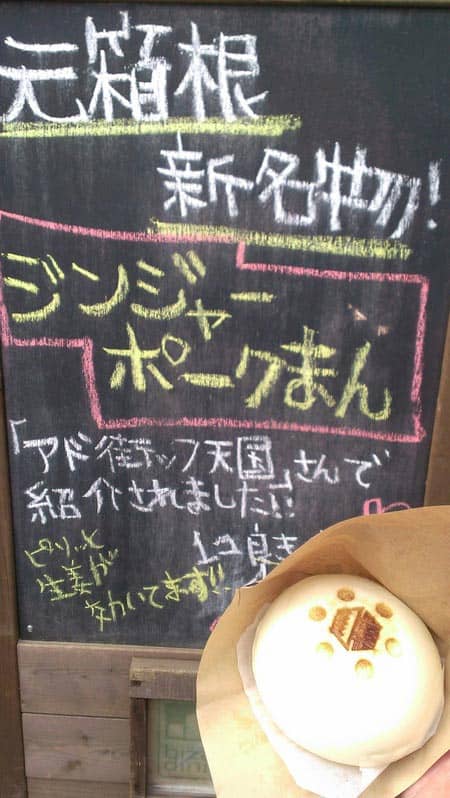 元箱根
新名物!
ジンジャー
ポークまん
「アド街ック天国」さんで
紹介されました!!
ピリッと
生姜が
効いてます!!
1コ